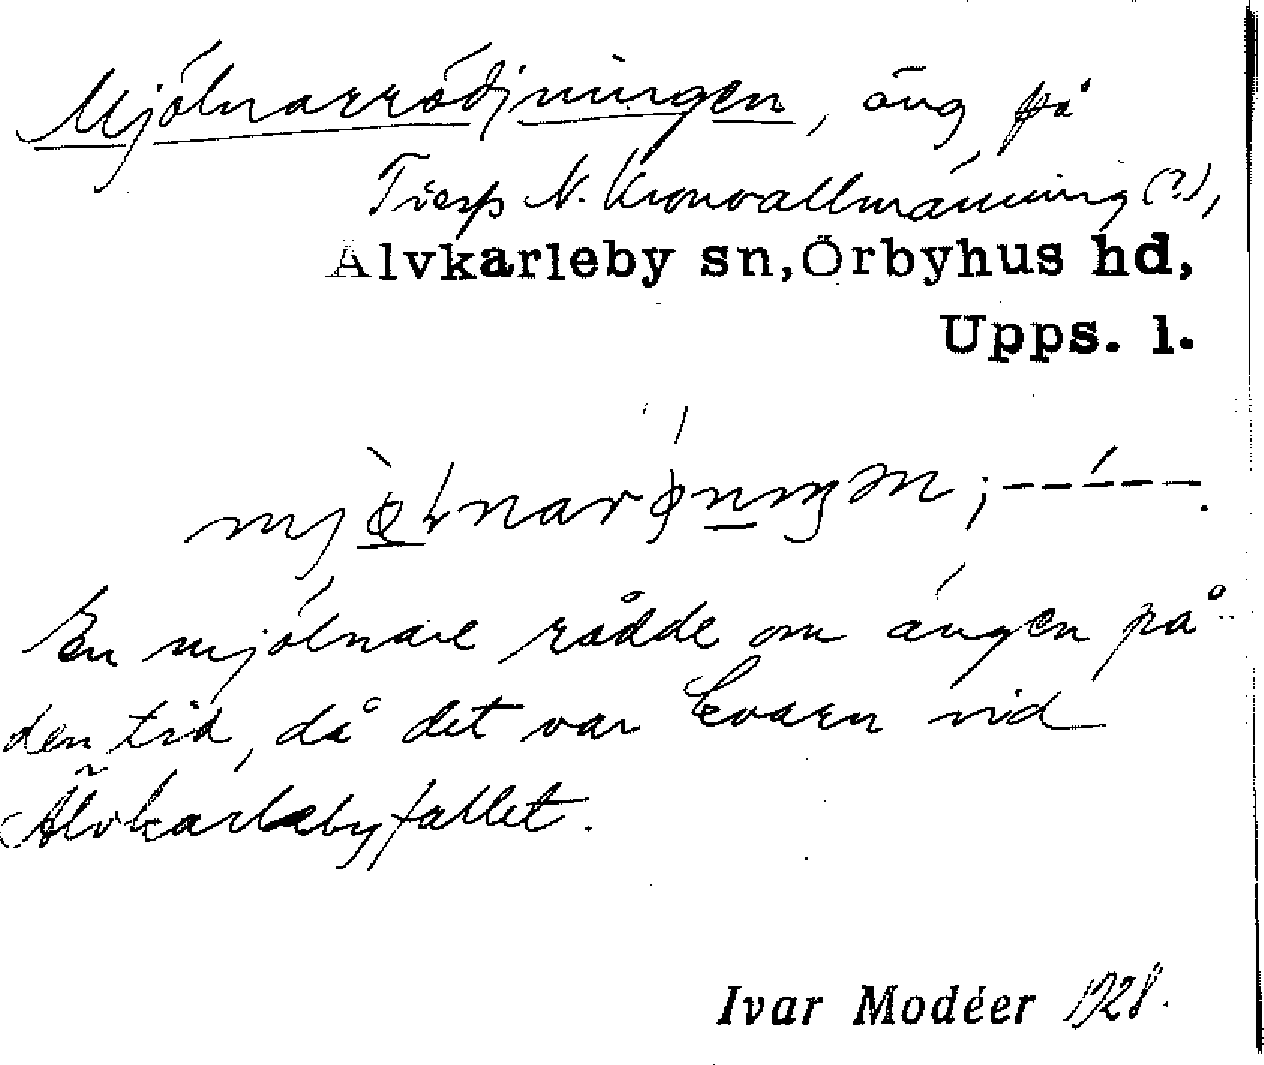 Mjölnarrödjningen, äng på
Tierp N. Kronoallmänning (?),
Älvkarleby sn, Örbyhus hd,
Upps. l.
En mjölnare rådde om ängen på
den tid, då det var kvarn vid
Älvkarlebyfallet.
Ivar Modéer 1928.